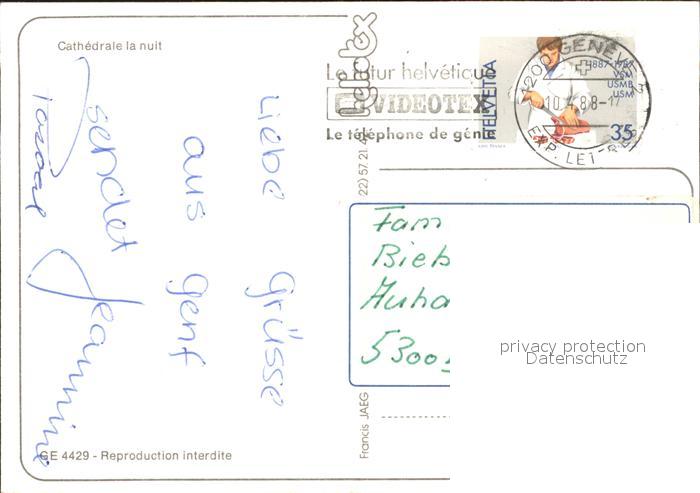 Cathédrale la nuit
Liebe Grüsse
aus Genf
sendet
Jeannine
GE 4429 - Reproduction interdite
Francis JAEG
(22) 57.21.
VIDEOTEX
Le téléphone de géni
HELVETIA
1887-1987
VSM
USMB
USM
35
1200 GENEVE
EXP. LET
Fam
Bieb
Auha
5300
privacy protection
Datenschutz